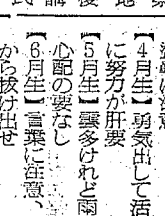 【4月生】勇気出して活
に努力が肝要
【5月生】雲多けれど雨
心配の要なし
【6月生】言葉に注意、
から抜け出せ